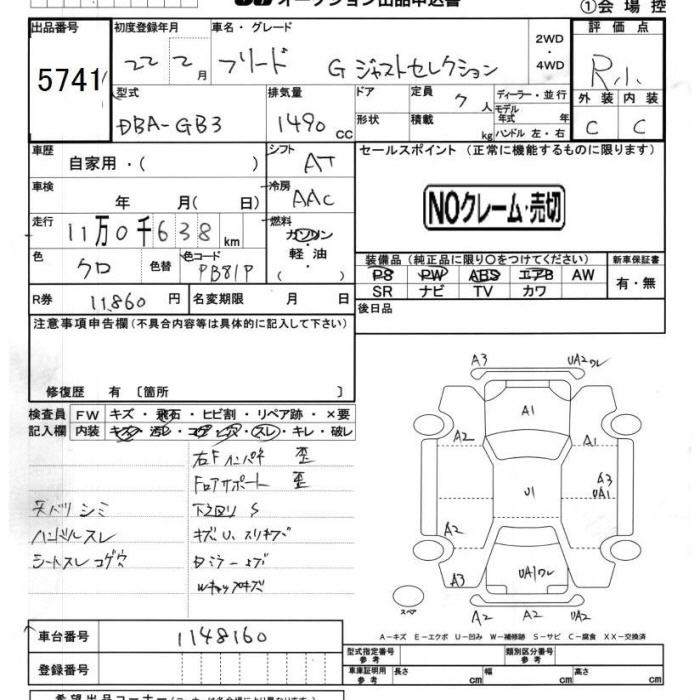 オークション出品申込書
①会場控
出品番号 初度登録年月 車名・グレード 評価点
5741 22 2月 フリード G ジャストセレクション 2WD・4WD R1
型式 排気量 ドア 定員 ディーラー・並行 外装 内装
DBA-GB3 1490cc 形状 7人 積載 kg モデル年式 年 ハンドル 左・右 C C
車歴 自家用・( ) シフト AT セールスポイント (正常に機能するものに限ります)
車検 年 月( 日) 冷房 AAC
NOクレーム・売切
走行 11万0千638km 燃料 ガソリン・軽油・( )
色 クロ 色替 色コード PB81P
装備品(純正品に限り○をつけてください) 新車保証書
PS PW ABS エアB AW 有・無
SR ナビ TV カワ
R券 11,860円 名変期限 月 日
後日品
注意事項申告欄(不具合内容等は具体的に記入して下さい)
修復歴 有〔箇所 〕
検査員 FW キズ・飛石・ヒビ割・リペア跡・×要
記入欄 内装 キズ・汚レ・コゲ・ビス穴・スレ・キレ・破レ
右Fインパネ 歪
Fロアサポート 歪
天バリ シミ 下回り S
ハンドルスレ キズU、スリキズ
シートスレ コゲ穴
Wキャップキズ
A3 UA2ワレ
A1
A2 A1
A3
UA1
U1
A2
A3 UA1ワレ
A2 A2 UA2ワレ
スペア
A-キズ E-エクボ U-凹み W-補修跡 S-サビ C-腐食 XX-交換済
車台番号 1148160
型式指定番号 参考 類別区分番号 参考
登録番号
車庫証明用 参考 長さ cm 幅 cm 高さ cm
希望出品コーナー